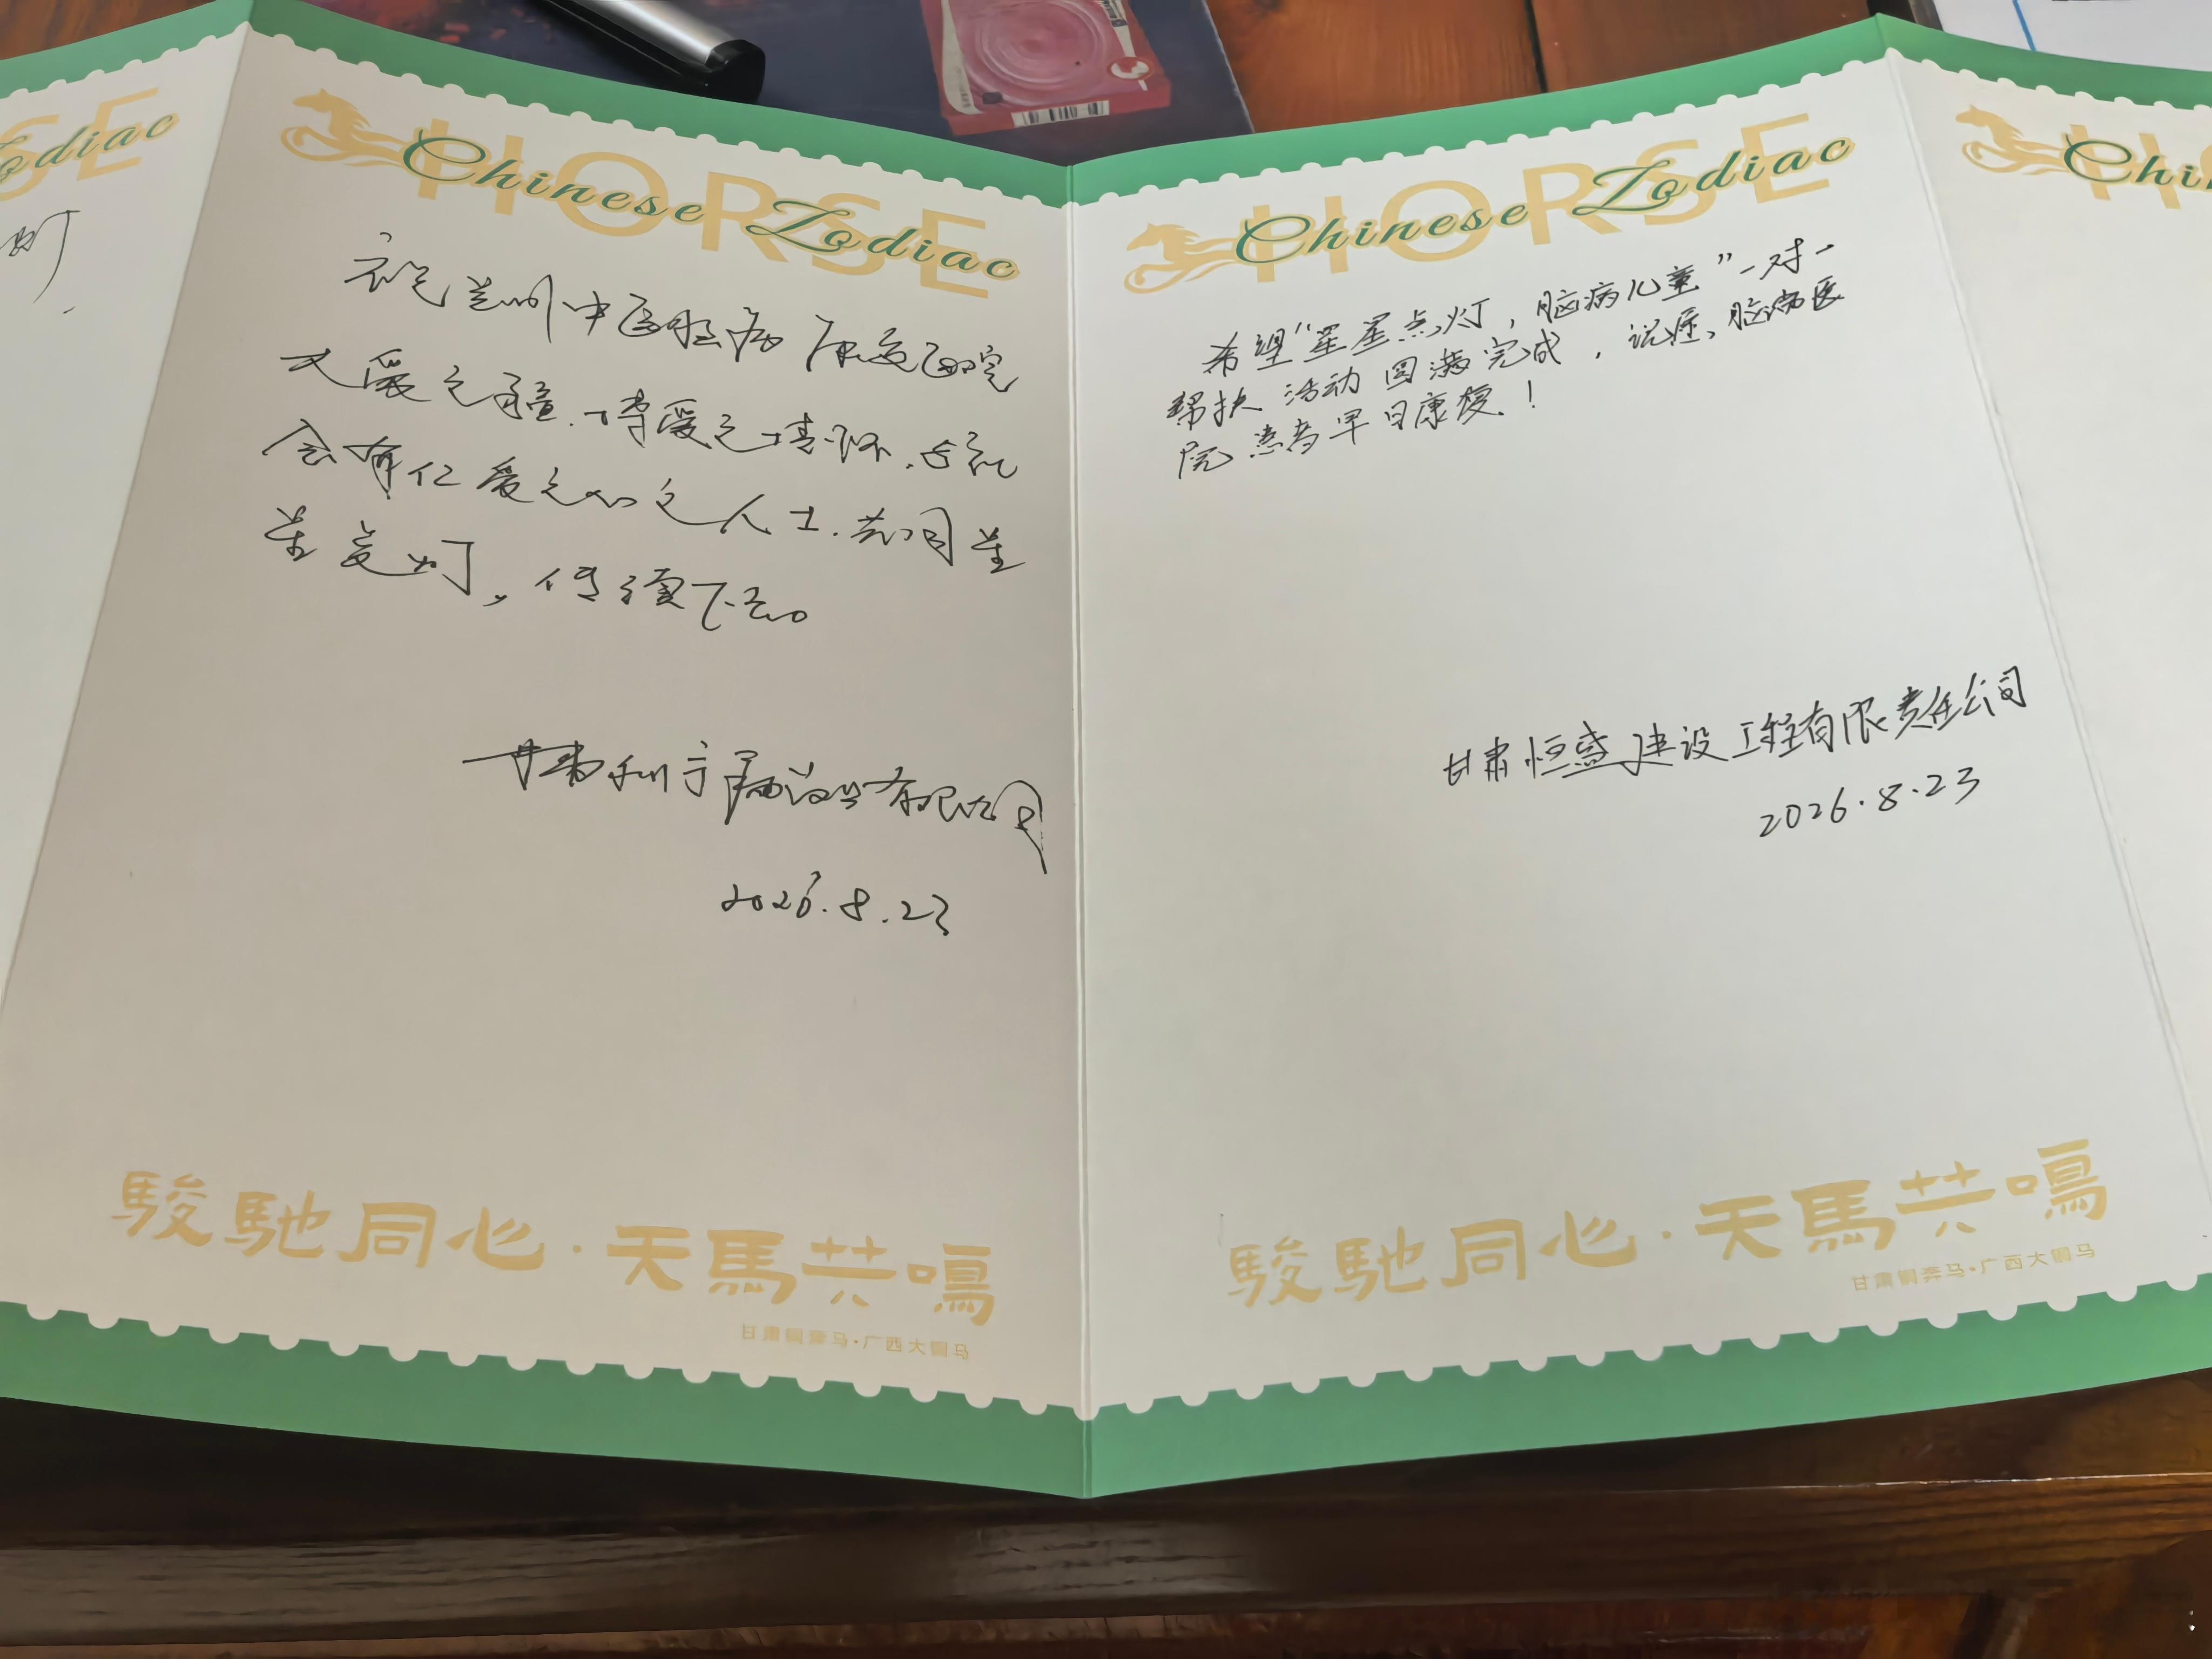 HORSE
Chinese Zodiac
祝兰州中医脑病康复医院
大爱之疆、博爱之情怀,与社
会有仁爱之心之人士.共同星
星点灯,传续下去。
有限公司
2026.8.23
駿馳同心·天馬共鳴
甘肃铜奔马·广西大铜马
HORSE
Chinese Zodiac
希望“星星点灯,脑病儿童”一对一
帮扶活动圆满完成,祝愿、脑病医
院患者早日康复!
甘肃恒盛建设工程有限责任公司
2026.8.23
駿馳同心·天馬共鳴
甘肃铜奔马·广西大铜马